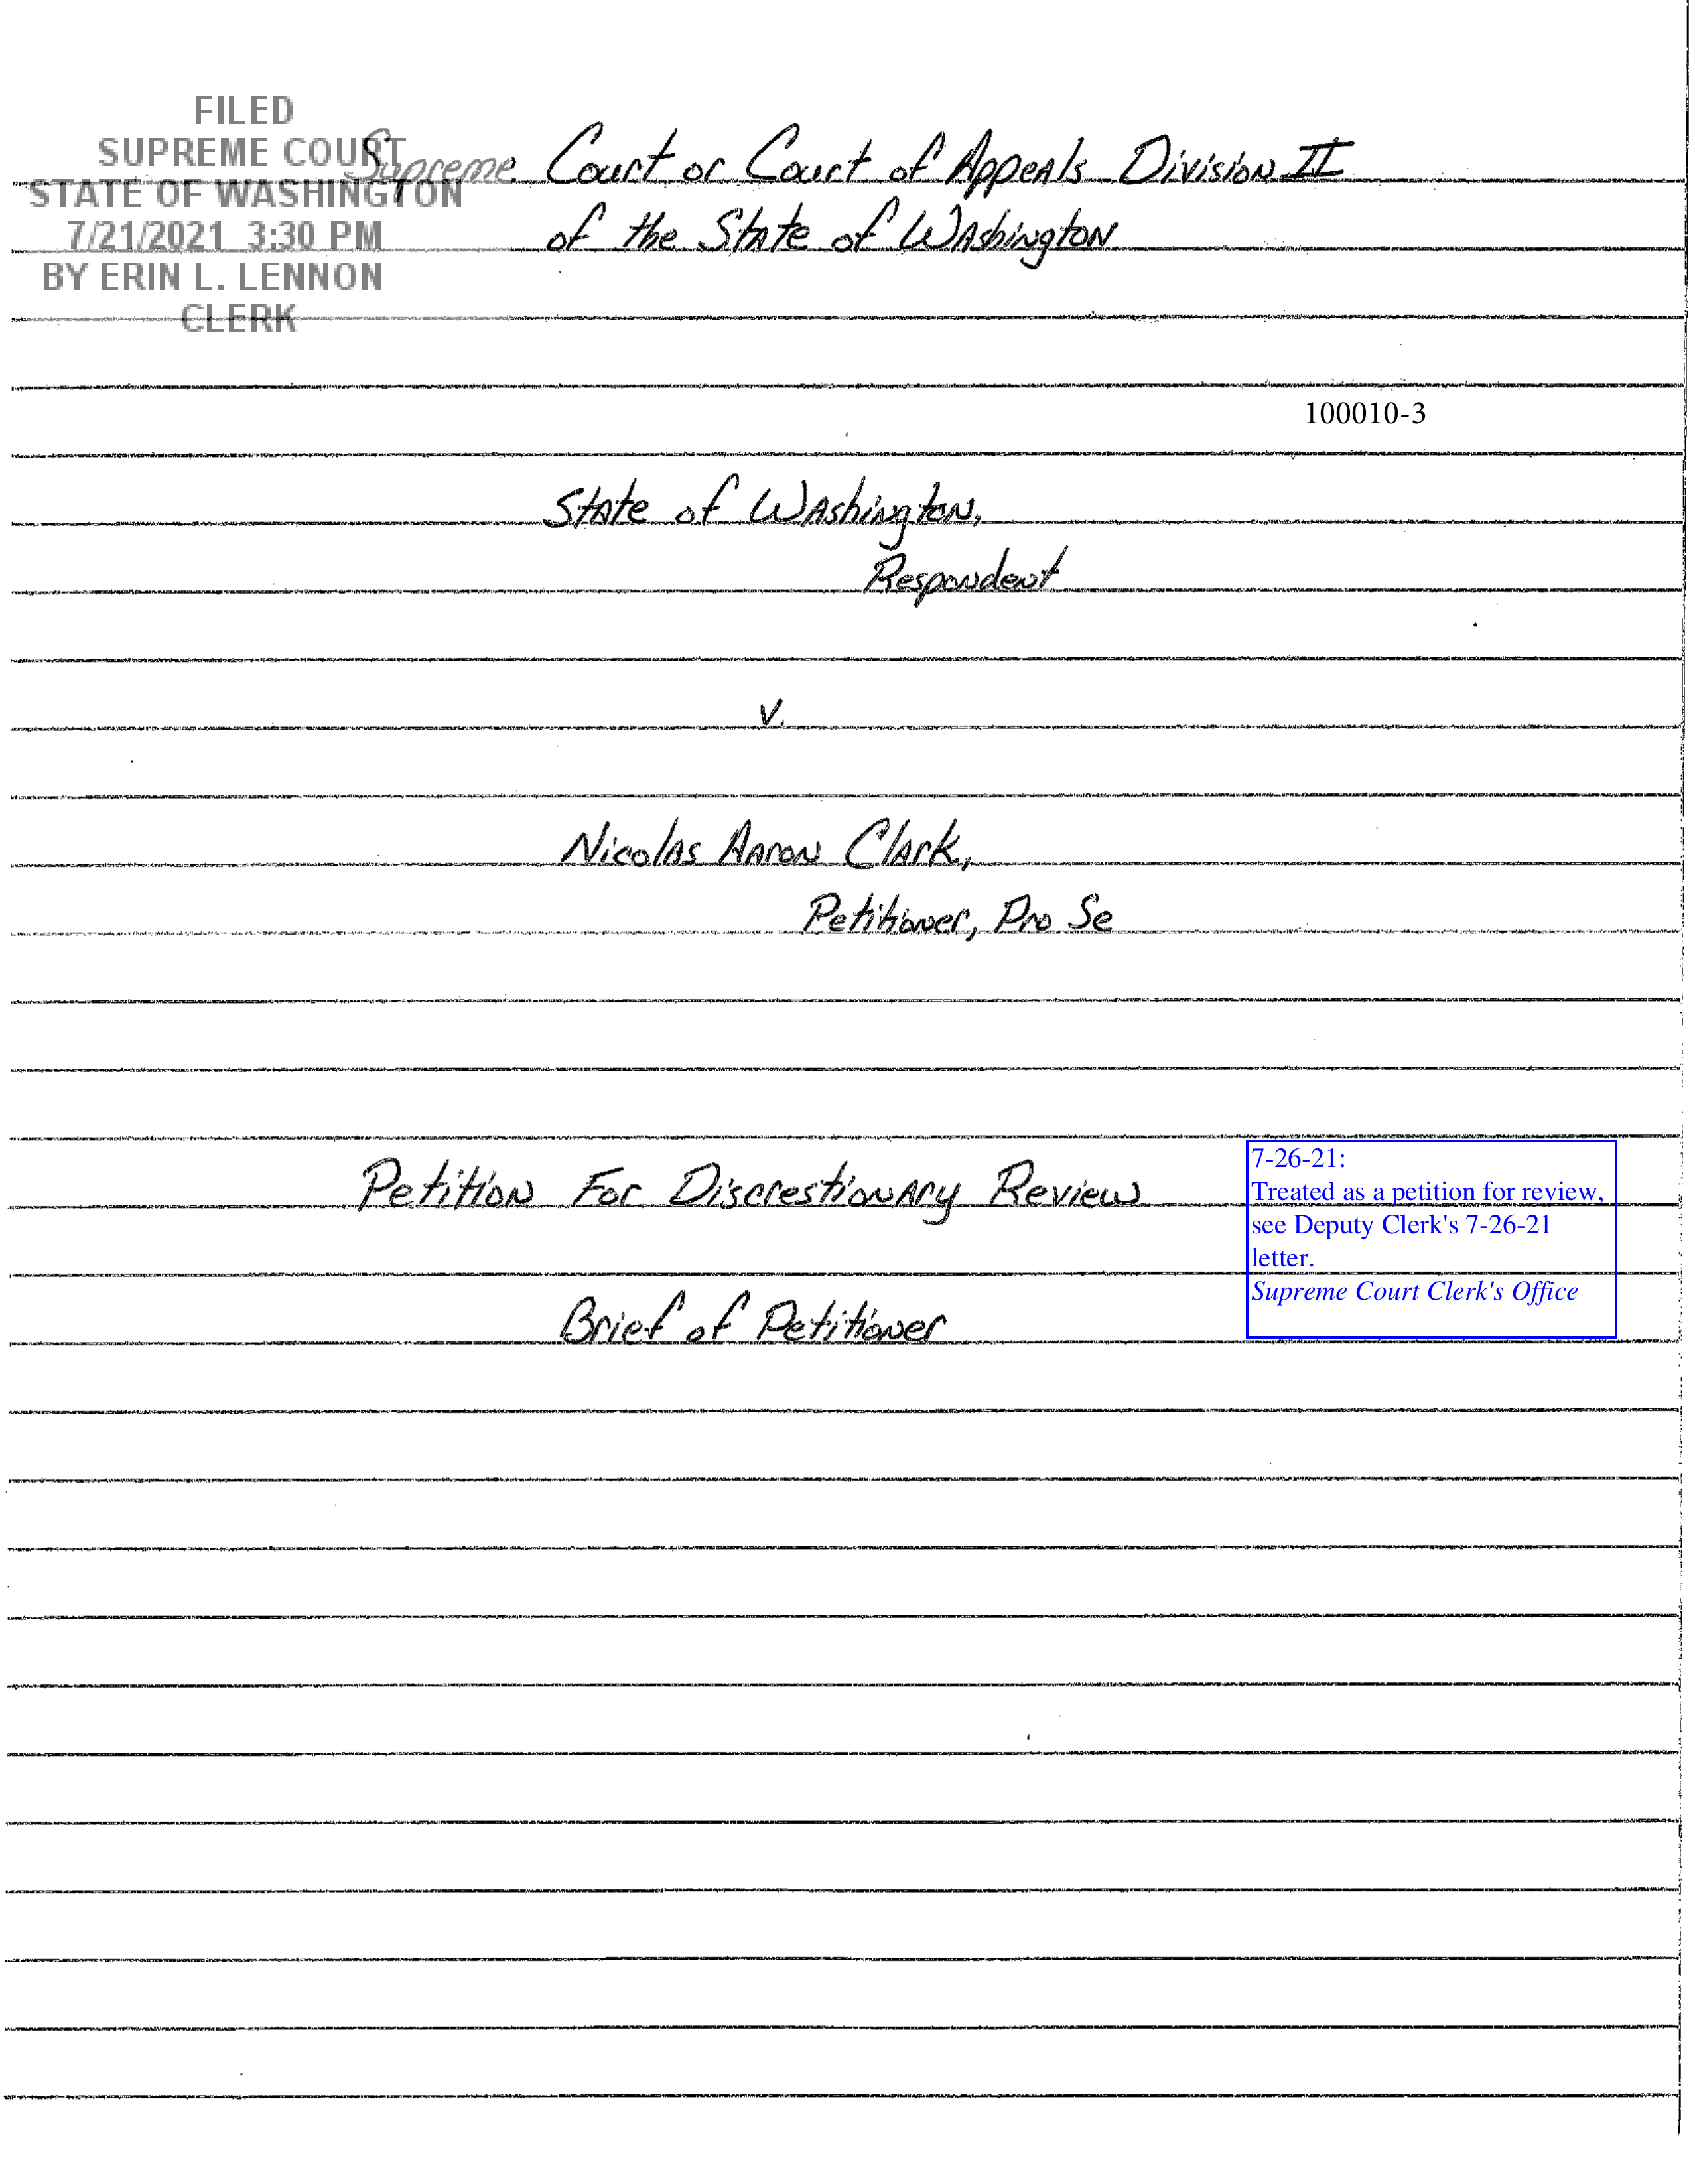 FILED
SUPREME COURT
STATE OF WASHINGTON
7/21/2021 3:30 PM
BY ERIN L. LENNON
CLERK
Supreme Court or Court of Appeals Division II
of the State of Washington
100010-3
State of Washington,
Respondent
v.
Nicolas Aaron Clark,
Petitioner, Pro Se
Petition For Discrestionary Review
Brief of Petitioner
7-26-21:
Treated as a petition for review,
see Deputy Clerk's 7-26-21
letter.
Supreme Court Clerk's Office